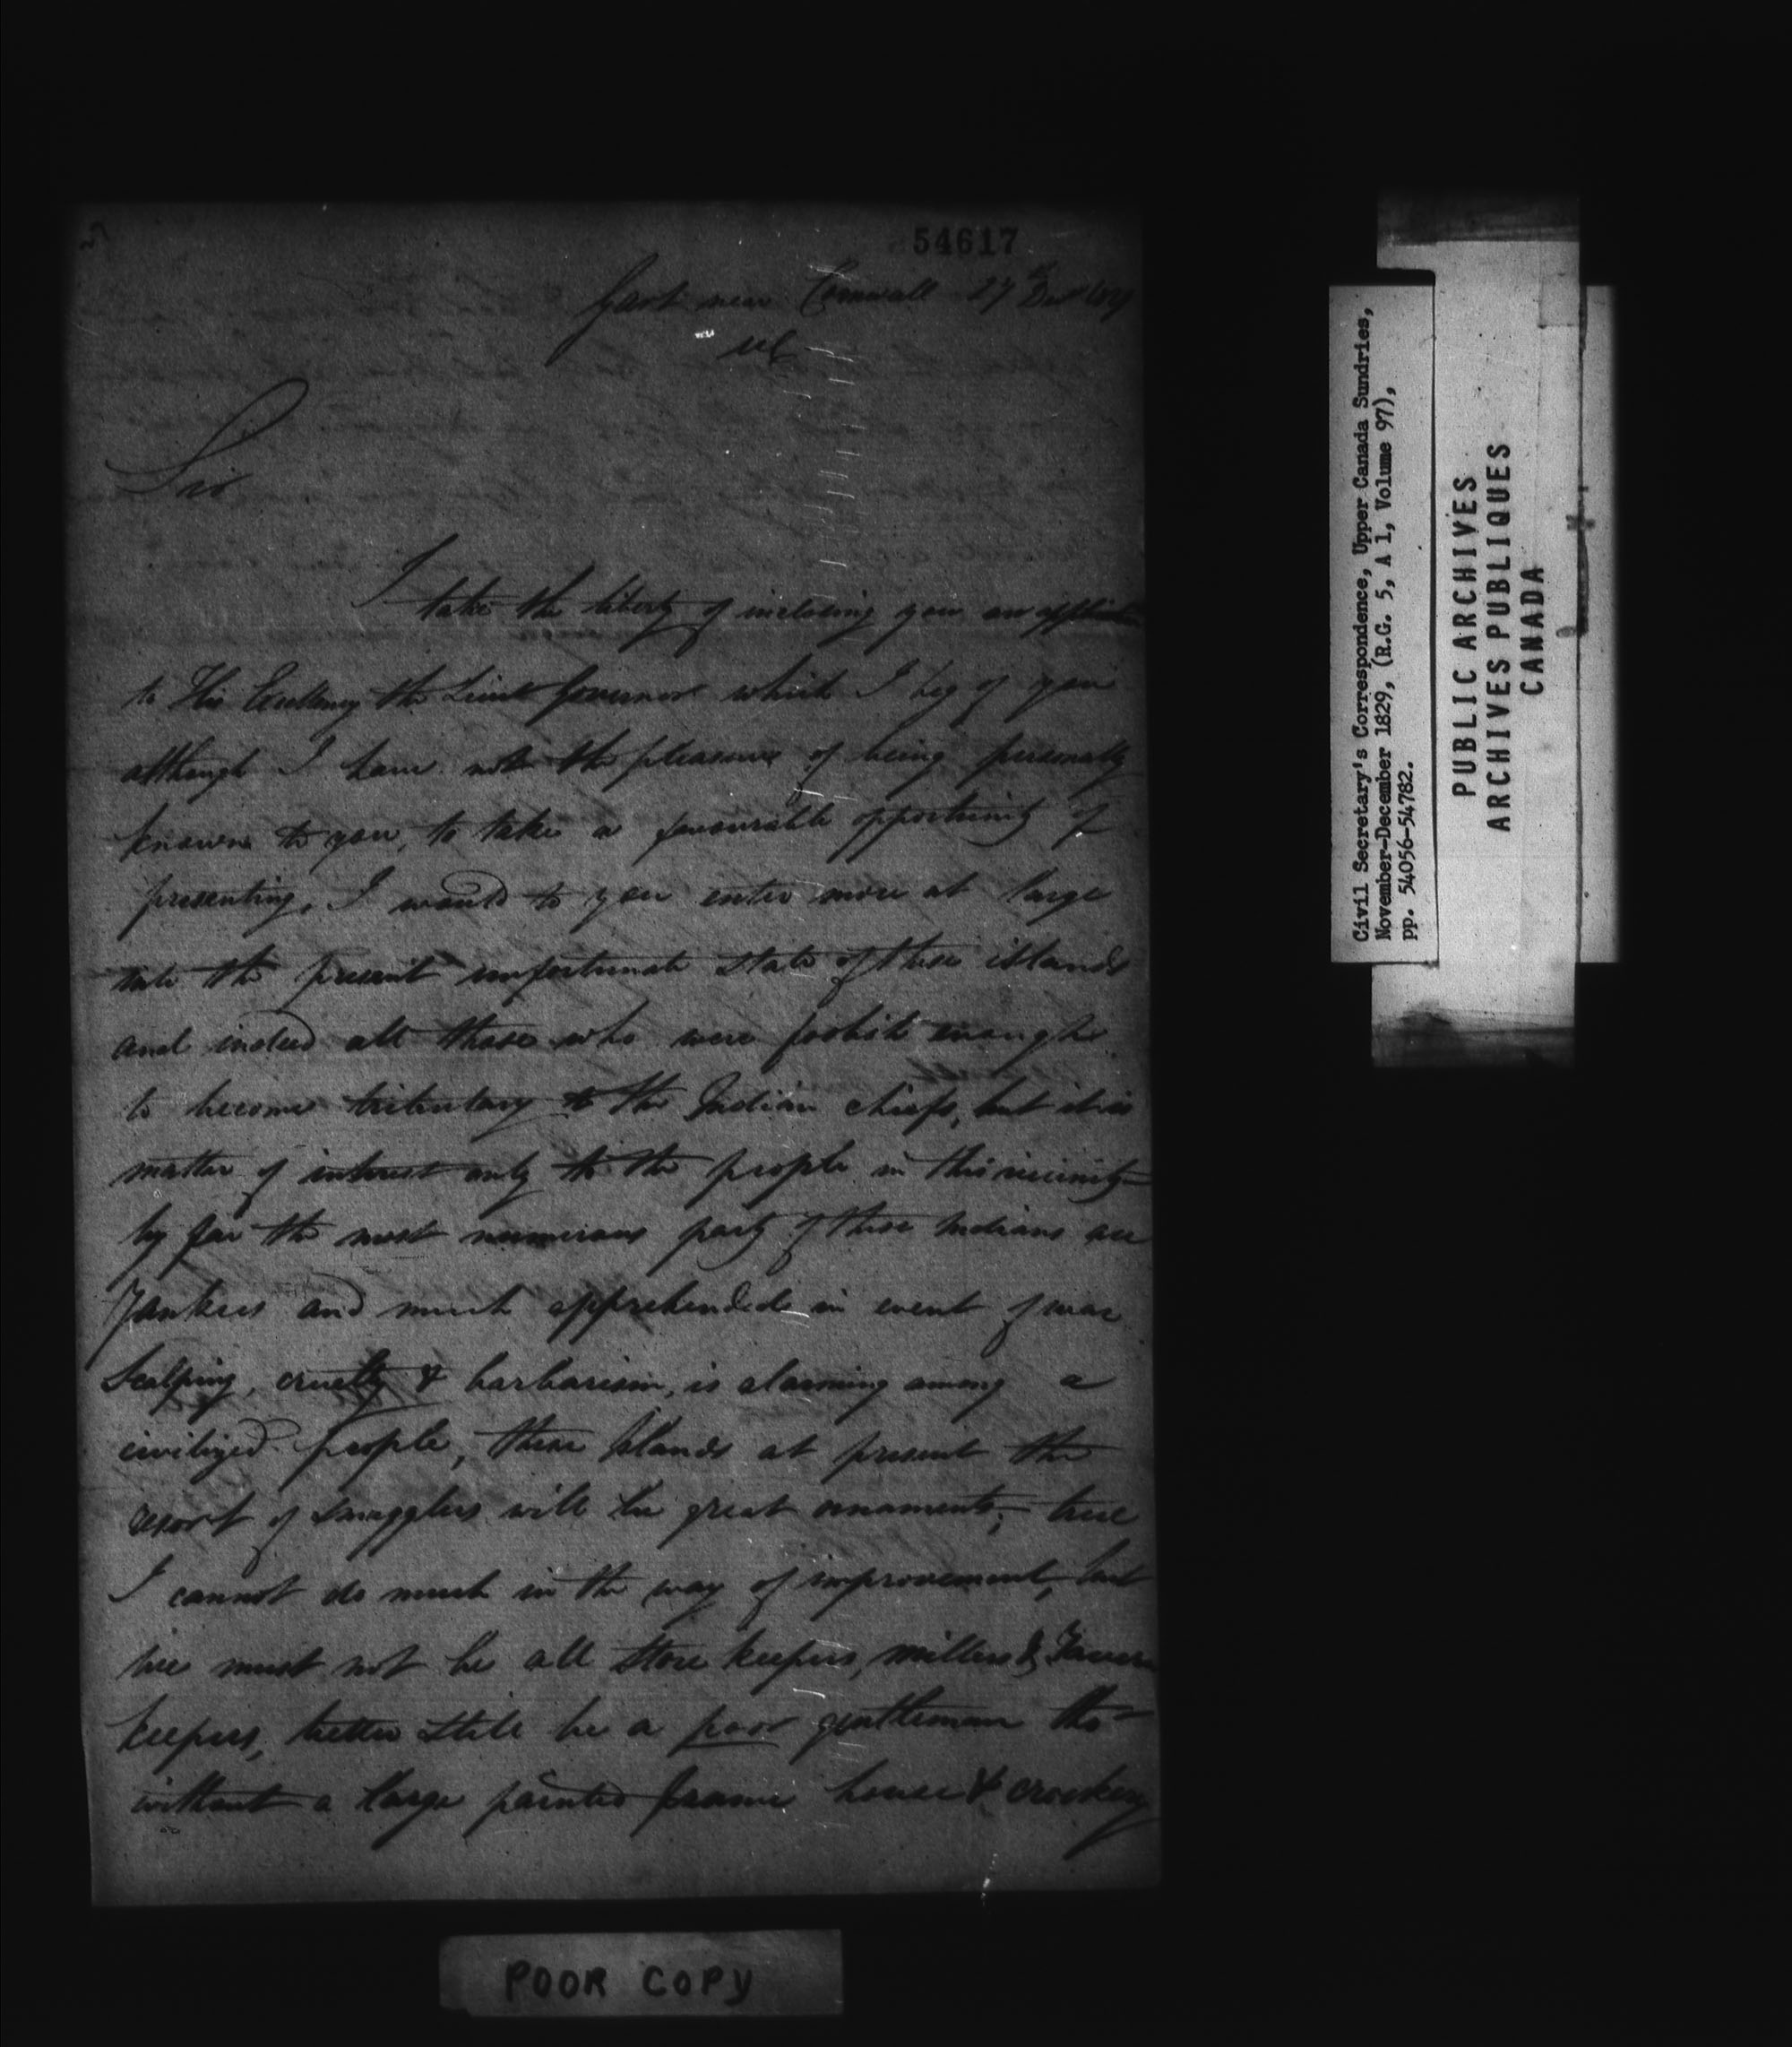 54617
near Cornwall 27th
UC
Sir
I take the liberty of inclosing you an application
to His Excellency the Lieut Governor which I beg of you
although I have not the pleasure of being personally
known to you, to take a favourable opportunity of
presenting, I would to you enter more at large
into the present unfortunate state of these islands
and indeed all those who were foolish enough
to become tributary to the Indian chiefs, but it is
matter of interest only to the people in this vicinity
by far the most numerous party of these Indians are
Yankees and much apprehended in event of war
Scalping, cruelty & barbarism, is alarming among a
civilized people, these Islands at present the
resort of smugglers will be great ornaments; true
I cannot do much in the way of improvement, but
we must not be all Store keepers, millers & Tavern
keepers, better still be a poor gentleman tho
without a large painted frame house & crockery
POOR COPY
Civil Secretary's Correspondence, Upper Canada Sundries,
November-December 1829, (R.G. 5, A 1, Volume 97),
pp. 54056-54782.
PUBLIC ARCHIVES
ARCHIVES PUBLIQUES
CANADA